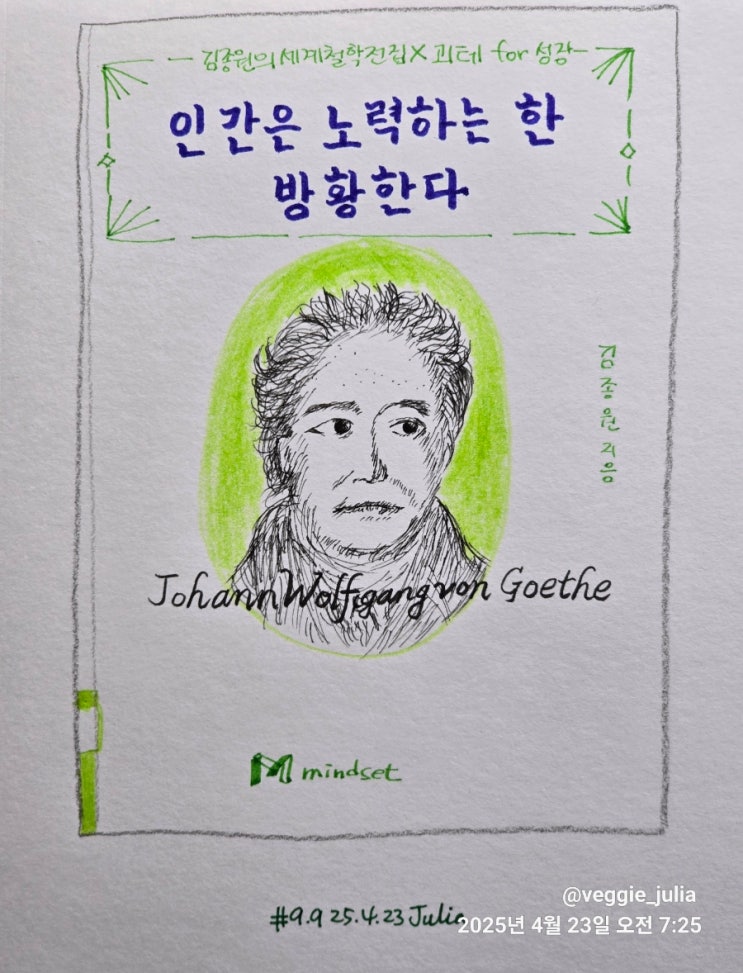 김종원의 세계철학전집 X 괴테 for 성장
인간은 노력하는 한
방황한다
김종원 지음
Johann Wolfgang von Goethe
M mindset
#9.9 25.4.23 Julie
@veggie_julia
2025년 4월 23일 오전 7:25